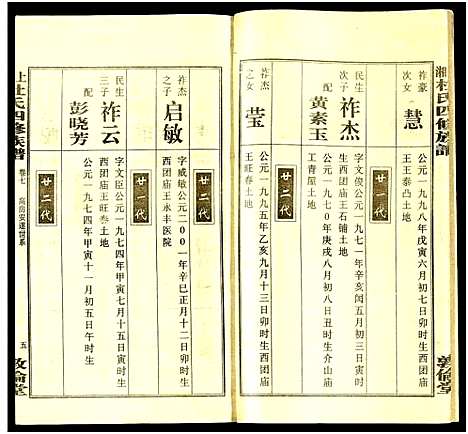 湘杜氏四修族譜
祚豪
之女
慧
公元一九九八年戊寅六月初四日卯时生西团庙
王王泰凸土地
廿一代
民生
次子
祚杰
配
黃素玉
字文俊公元一九七一年辛亥闰五月初三日寅时
生西团庙王石铺土地
公元一九七0年庚戌八月初八日丑时生介山庙
工青屋土地
廿二代
祚杰
之女
莹
公元一九九五年乙亥九月十三日卯时生西团庙
王旺春土地
廿二代
祚杰
之子
启敏
字威敏公元二00一年辛巳正月十一日卯时生
西团庙王永丰医院
廿一代
民生
三子
祚云
配
彭晓芳
字文臣公元一九七四年甲寅七月十五日寅时生
西团庙王旺春土地
公元一九七四年甲寅十一月初五日午时生
上杜氏四修族譜
卷七
五
敦倫堂
敦倫堂